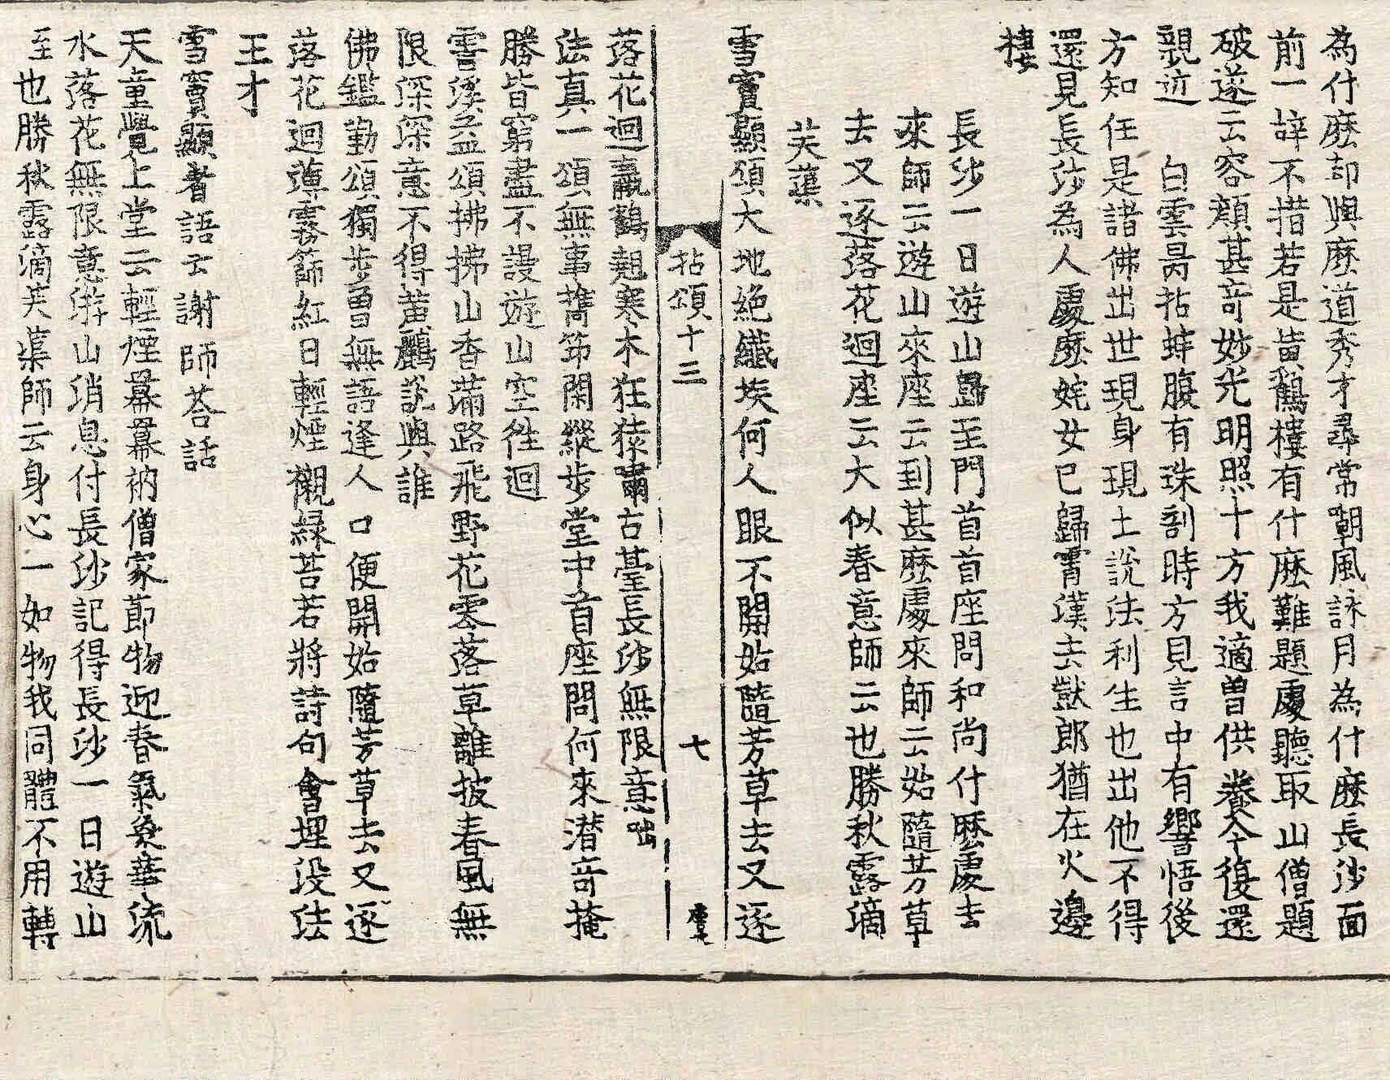 為什麽却與麽道秀才尋常嘲風詠月為什麽長沙面
前一辝不措若是黃鶴樓有什麽難題處聽取山僧題
破遂云容顏甚奇妙光明照十方我適曾供養今復還
親近　白雲昺拈蚌腹有珠剖時方見言中有響悟後
方知任是諸佛出世現身現土說法利生也出他不得
還見長沙為人處麽姹女已歸霄漢去獃郎猶在火邊
棲
長沙一日遊山歸至門首首座問和尚什麽處去
來師云遊山來座云到甚麽處來師云始隨芳草
去又逐落花迴座云大似春意師云也勝秋露滴
芙蕖
雪竇顯頌大地絶纖埃何人眼不開始隨芳草去又逐
拈頌十三
七
落花迴羸鶴翹寒木狂猿嘯古臺長沙無限意咄
法真一頌無事䧺笻閑縱步堂中首座問何來潜奇掩
勝皆窮盡不謾遊山空徃迴
霅溪益頌拂拂山香滿路飛野花零落草離披春風無
限深深意不得黃鸝說與誰
佛鑑勤頌獨步曾無語逢人口便開始隨芳草去又逐
落花迴薄霧篩紅日輕煙襯綠苔若將詩句會埋没法
王才
雪竇顯着語云謝師荅話
天童覺上堂云輕煙羃羃衲僧家節物迎春氣象華流
水落花無限意遊山消息付長沙記得長沙一日遊山
至也勝秋露滴芙蕖師云身心一如物我同體不用轉